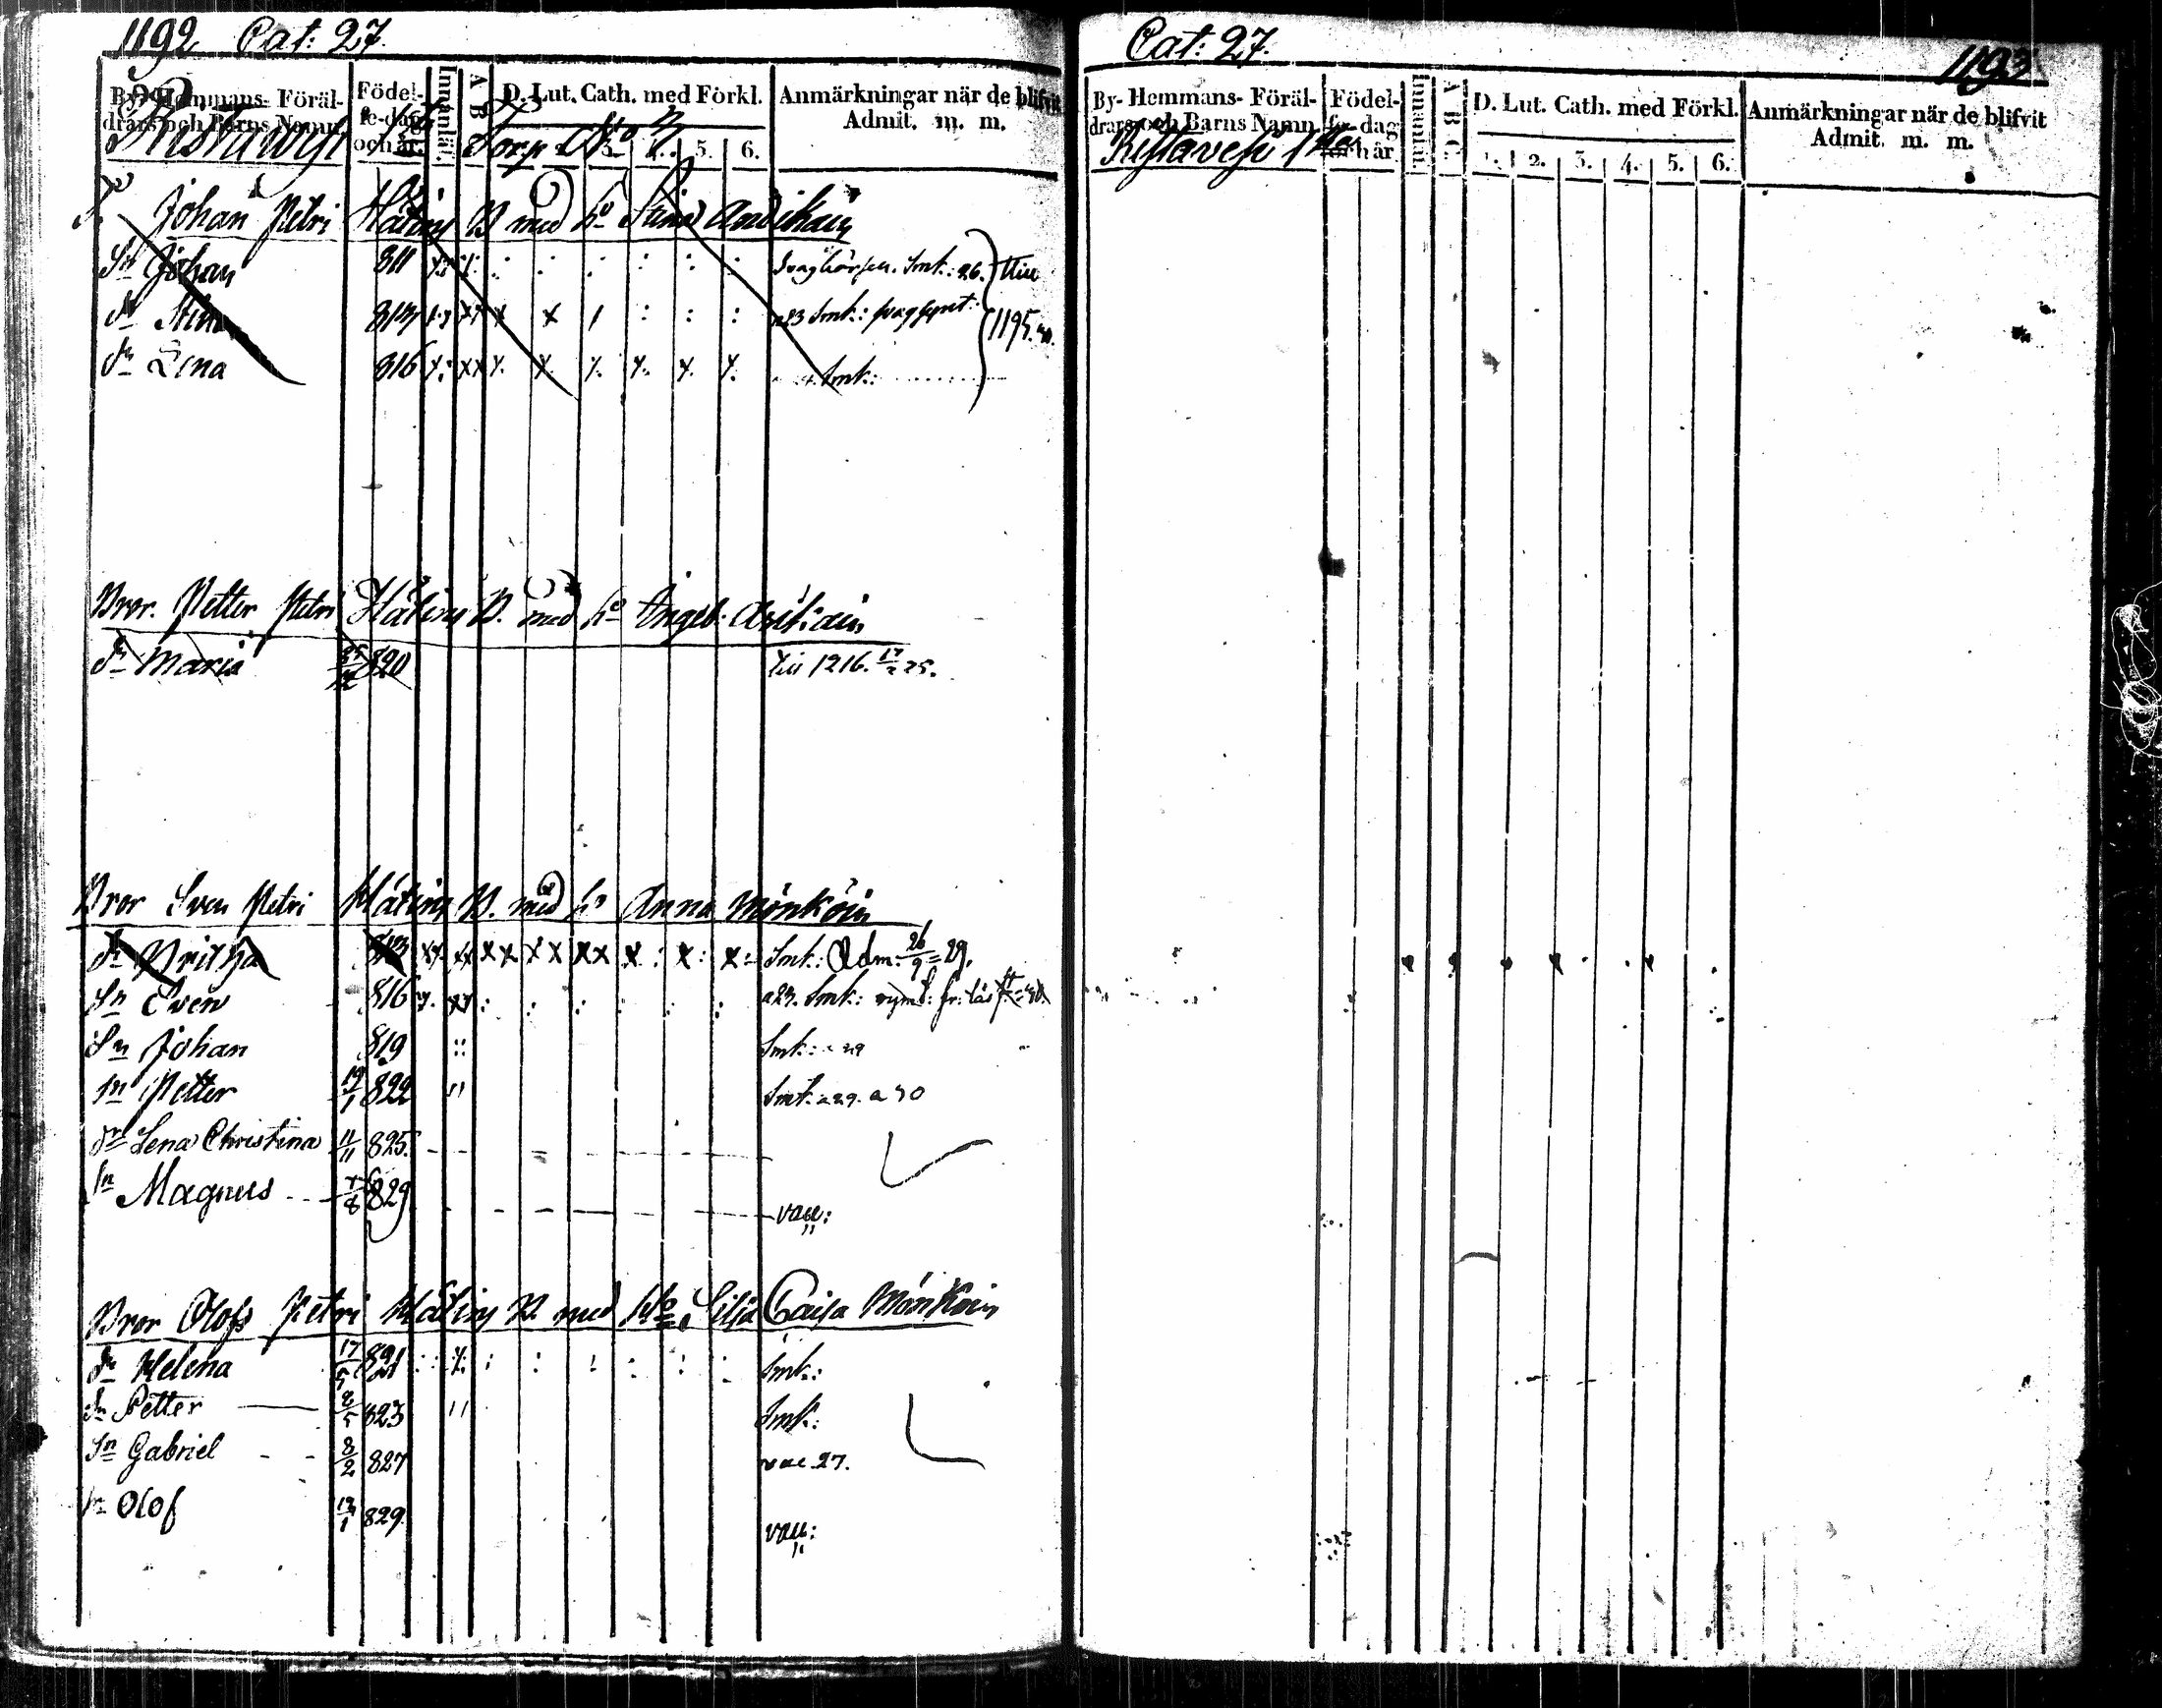 1192 Cat: 27.
By- Hemmans- Föräl-
drars och Barns Namn.
Födel-
se-dag
och år.
Innanläs.
A B C
D. Lut. Cath. med Förkl.
3. 4. 5. 6.
Anmärkningar när de blifvit
Admit. m. m.
Torp
Johan Petri Hätin B. med h:o Stina
Sn Johan 811 Smk: 26. till
Dr Stina 813 a23 Smk: 1195.
Dr Lena 816 Smk:
Bror. Petter Petri Hätin B. med h:o Ingeb:
Dr Maria 820 till 1216. 25.
Bror Sven Petri Hätin B. med h:o Anna Mönköin
Dr Britha 813 Smk: Adm: 26/9 = 29.
Sn Sven 816 a23. Smk:
Sn Johan 819 Smk: a 29
Sn Petter 19/1 822 Smk: a 29. a 30
Dr Lena Christina 11/11 825.
Sn Magnus 7/8 829 vacc:
Bror Olof Petri Hätin B. med h:o Lisa Caisa Mönköin
Dr Helena 17/5 821 Smk:
Sn Petter 8/5 823 Smk:
Sn Gabriel 8/2 827 vac 27.
Sn Olof 13/1 829 vacc:
Cat: 27. 1193
By- Hemmans- Föräl-
drars och Barns Namn
Födel-
se dag
och år
Innanläs.
A B C
D. Lut. Cath. med Förkl.
1. 2. 3. 4. 5. 6.
Anmärkningar när de blifvit
Admit. m. m.